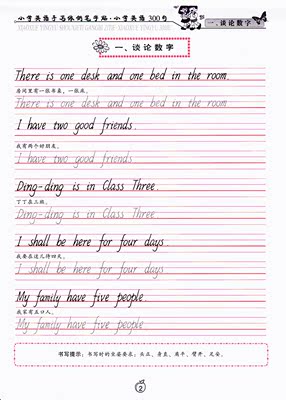 小学英语手写体钢笔字帖·小学英语300句
一、谈论数字
一、谈论数字
There is one desk and one bed in the room.
房间里有一张书桌，一张床。
There is one desk and one bed in the room.
I have two good friends.
我有两个好朋友。
I have two good friends.
Ding-ding is in Class Three.
丁丁在三班。
Ding-ding is in Class Three.
I shall be here for four days.
我要在这儿待四天。
I shall be here for four days.
My family have five people.
我家有五口人。
My family have five people.
书写提示：书写时的坐姿要求：头正、身直、肩平、臂开、足安。
2